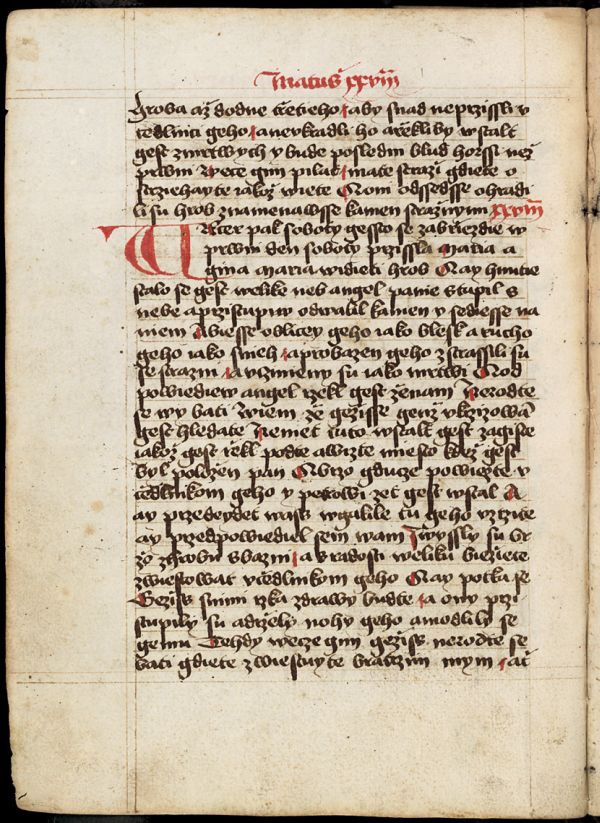 Matus xxviii
hroba až do dne třetieho aby snad neprzissli v
čedlnici geho a nevkradli ho a řekli by wstalt
gest z mrtwych y bude posledni blud horssi než
prwni Wece gim pilat mate straži gdiete o
strziehayte iakož wiete Oni odssedsse ohradi
li su hrob znamenawsse kamen s stražnymi xxviii
Wečer pak soboty gessto se zabřiezdie w
prwni den soboty przissla maria a
gina maria widieti hrob A ay hnutie
stalo se gest welike neb angel panie stupil s
nebe a przistupiw odwalil kamen y sediesse na
niem A biesse obliczey geho iako blesk a rucho
geho iako snieh a pro bazen geho zstrassili su
se strazni a vczinieny su iako mrtwi A od
powiediew angel rzekl gest ženam Nerodte
se wy bati wiem že gežisse genž vkrzizowan
gest hledate Neniet tuto wstalt gest zagiste
iakož gest řekl podte a wizte miesto kdež gest
byl položen pan A brzo gducze powiezte v
čedlnikom geho y petrowi žet gest wstal A
ay przedeydet wass w galilee tu geho vzrzite
ay przedpowiediel sem wam I wyssly su br
zo z hrobu s bazni a s radosti weliku biežiece
zwiestowat včedlnikom geho A ay potka se
Gežiss s nimi rzka zdrawy budte a ony przi
stupily su a držely nohy geho a modlily se
gemu Tehdy wecze gim gežiss nerodte se
bati gdiete zwiestuyte bratrzim mym at